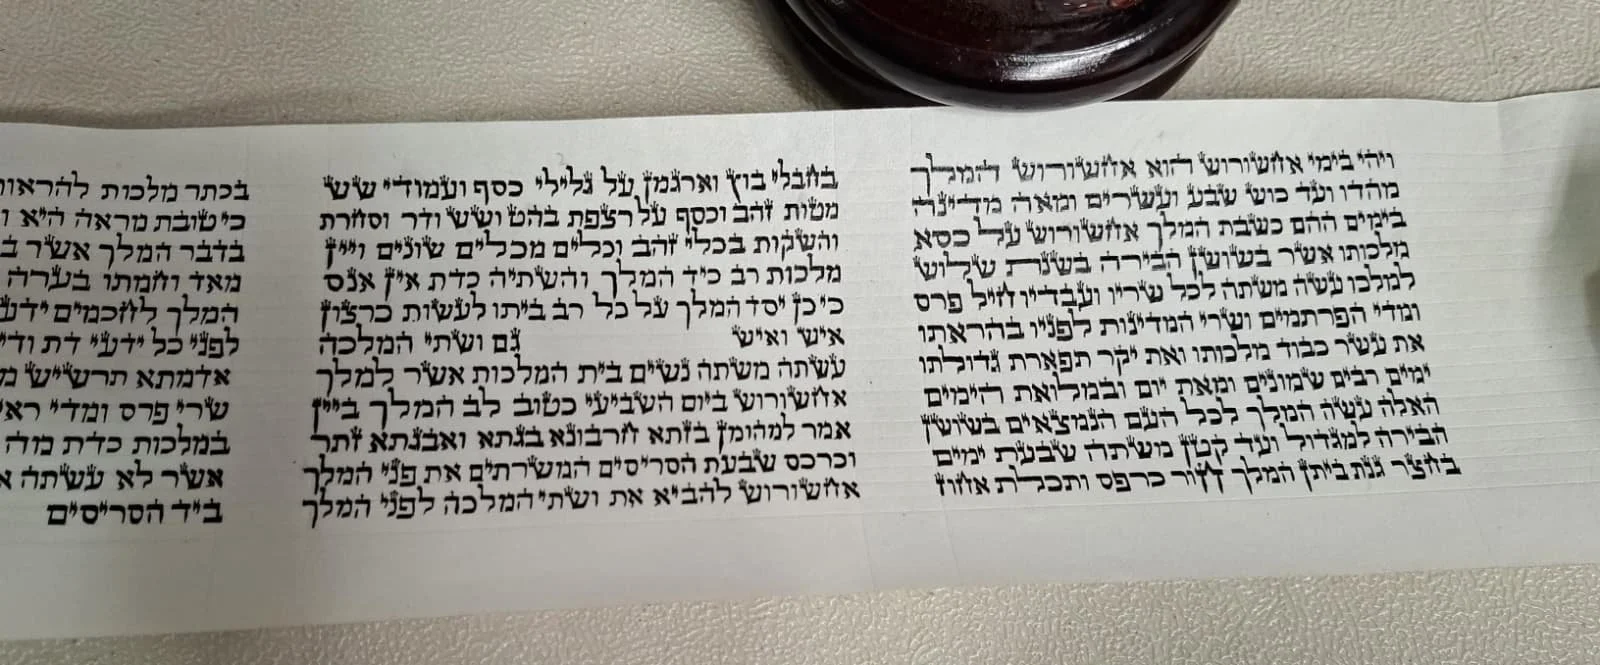 ויהי בימי אחשורוש הוא אחשורוש המלך
מהדו ועד כוש שבע ועשרים ומאה מדינה
בימים ההם כשבת המלך אחשורוש על כסא
מלכותו אשר בשושן הבירה בשנת שלוש
למלכו עשה משתה לכל שריו ועבדיו חיל פרס
ומדי הפרתמים ושרי המדינות לפניו בהראתו
את עשר כבוד מלכותו ואת יקר תפארת גדולתו
ימים רבים שמונים ומאת יום ובמלואת הימים
האלה עשה המלך לכל העם הנמצאים בשושן
הבירה למגדול ועד קטן משתה שבעת ימים
בחצר גנת ביתן המלך חור כרפס ותכלת אחוז
בחבלי בוץ וארגמן על גלילי כסף ועמודי שש
מטות זהב וכסף על רצפת בהט ושש ודר וסחרת
והשקות בכלי זהב וכלים מכלים שונים ויין
מלכות רב כיד המלך והשתיה כדת אין אנס
כי כן יסד המלך על כל רב ביתו לעשות כרצון
איש ואיש גם ושתי המלכה
עשתה משתה נשים בית המלכות אשר למלך
אחשורוש ביום השביעי כטוב לב המלך ביין
אמר למהומן בזתא חרבונא בגתא ואבגתא זתר
וכרכס שבעת הסריסים המשרתים את פני המלך
אחשורוש להביא את ושתי המלכה לפני המלך
בכתר מלכות להראות
כי טובת מראה היא
בדבר המלך אשר
מאד וחמתו בערה
המלך לחכמים ידעי
לפני כל ידעי דת ודין
אדמתא תרשיש
שרי פרס ומדי ראי
במלכות כדת מה
אשר לא עשתה
ביד הסריסים